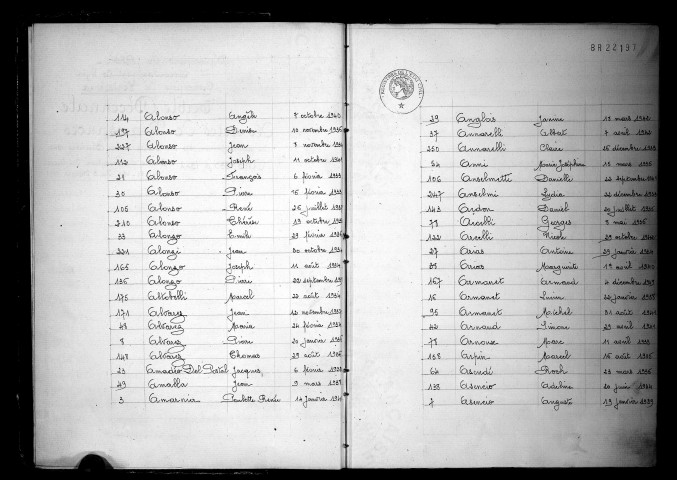 114 Alonso Angèle 7 octobre
197 Alonso Denise 10 novembre
227 Alonso Jean 8 novembre
112 Alonso Joseph 11 octobre
21 Alonso François 6 février
30 Alonso Pierre 16 février
105 Alonso René 26 juillet
210 Alonso Thérèse 19 octobre
33 Alonzo Emile 29 février
221 Alonzi Jean 30 octobre
165 Alonzo Joseph 11 août 1934
136 Alonzo Pierre 22 septembre
175 Altobelli Marcel 22 août 1934
171 Alvarez Jean 12 novembre
48 Alvarez Maria 24 février
8 Alvarez Pierre 20 janvier
148 Alvarez Thomas 29 août 1936
23 Amadéo Del Postal Jacques 6 février
49 Amalla Jean 9 mars 1938
3 Amarnia Paulette Renée 14 janvier
8R22197
29 Anglais Janine 19 mars
37 Annarelli Albert 7 avril
250 Annarelli Claire 16 décembre
64 Anni Marie Joséphine 15 mars
106 Anselmetti Danielle 22 septembre
247 Anselmi Lydia 22 décembre
143 Ardon Daniel 20 juillet
79 Arcelli Georges 9 mai 1936
122 Arcelli Nicole 29 octobre
27 Arias Antoine 25 janvier
38 Arias Marguerite 19 avril
167 Armanet Armand 4 décembre
16 Armanet Lucien 22 janvier 1938
95 Armanet Michel 31 août
42 Arnaud Simone 29 avril
78 Arnoux Marc 11 avril
158 Arpin Marcel 16 août 1936
64 Asendé Roch 23 mars 1936
138 Asencio Adeline 20 juin 1934
7 Asencio Auguste 19 janvier 1939